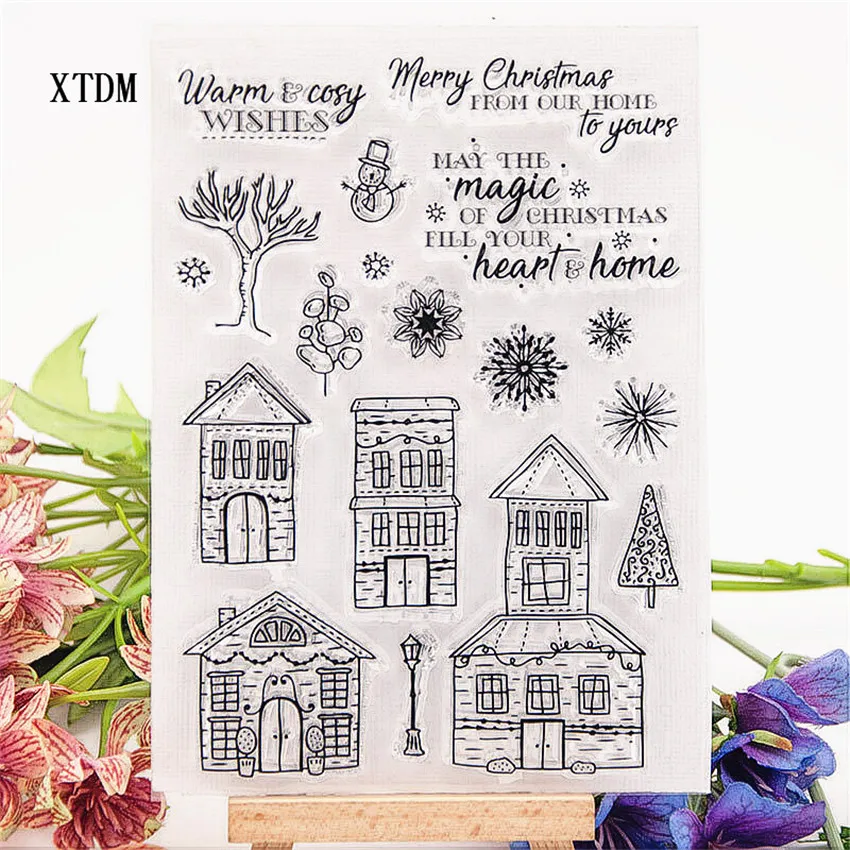 XTDM
Warm & cosy
WISHES
Merry Christmas
FROM OUR HOME
to yours
MAY THE
magic
OF CHRISTMAS
FILL YOUR
heart & home